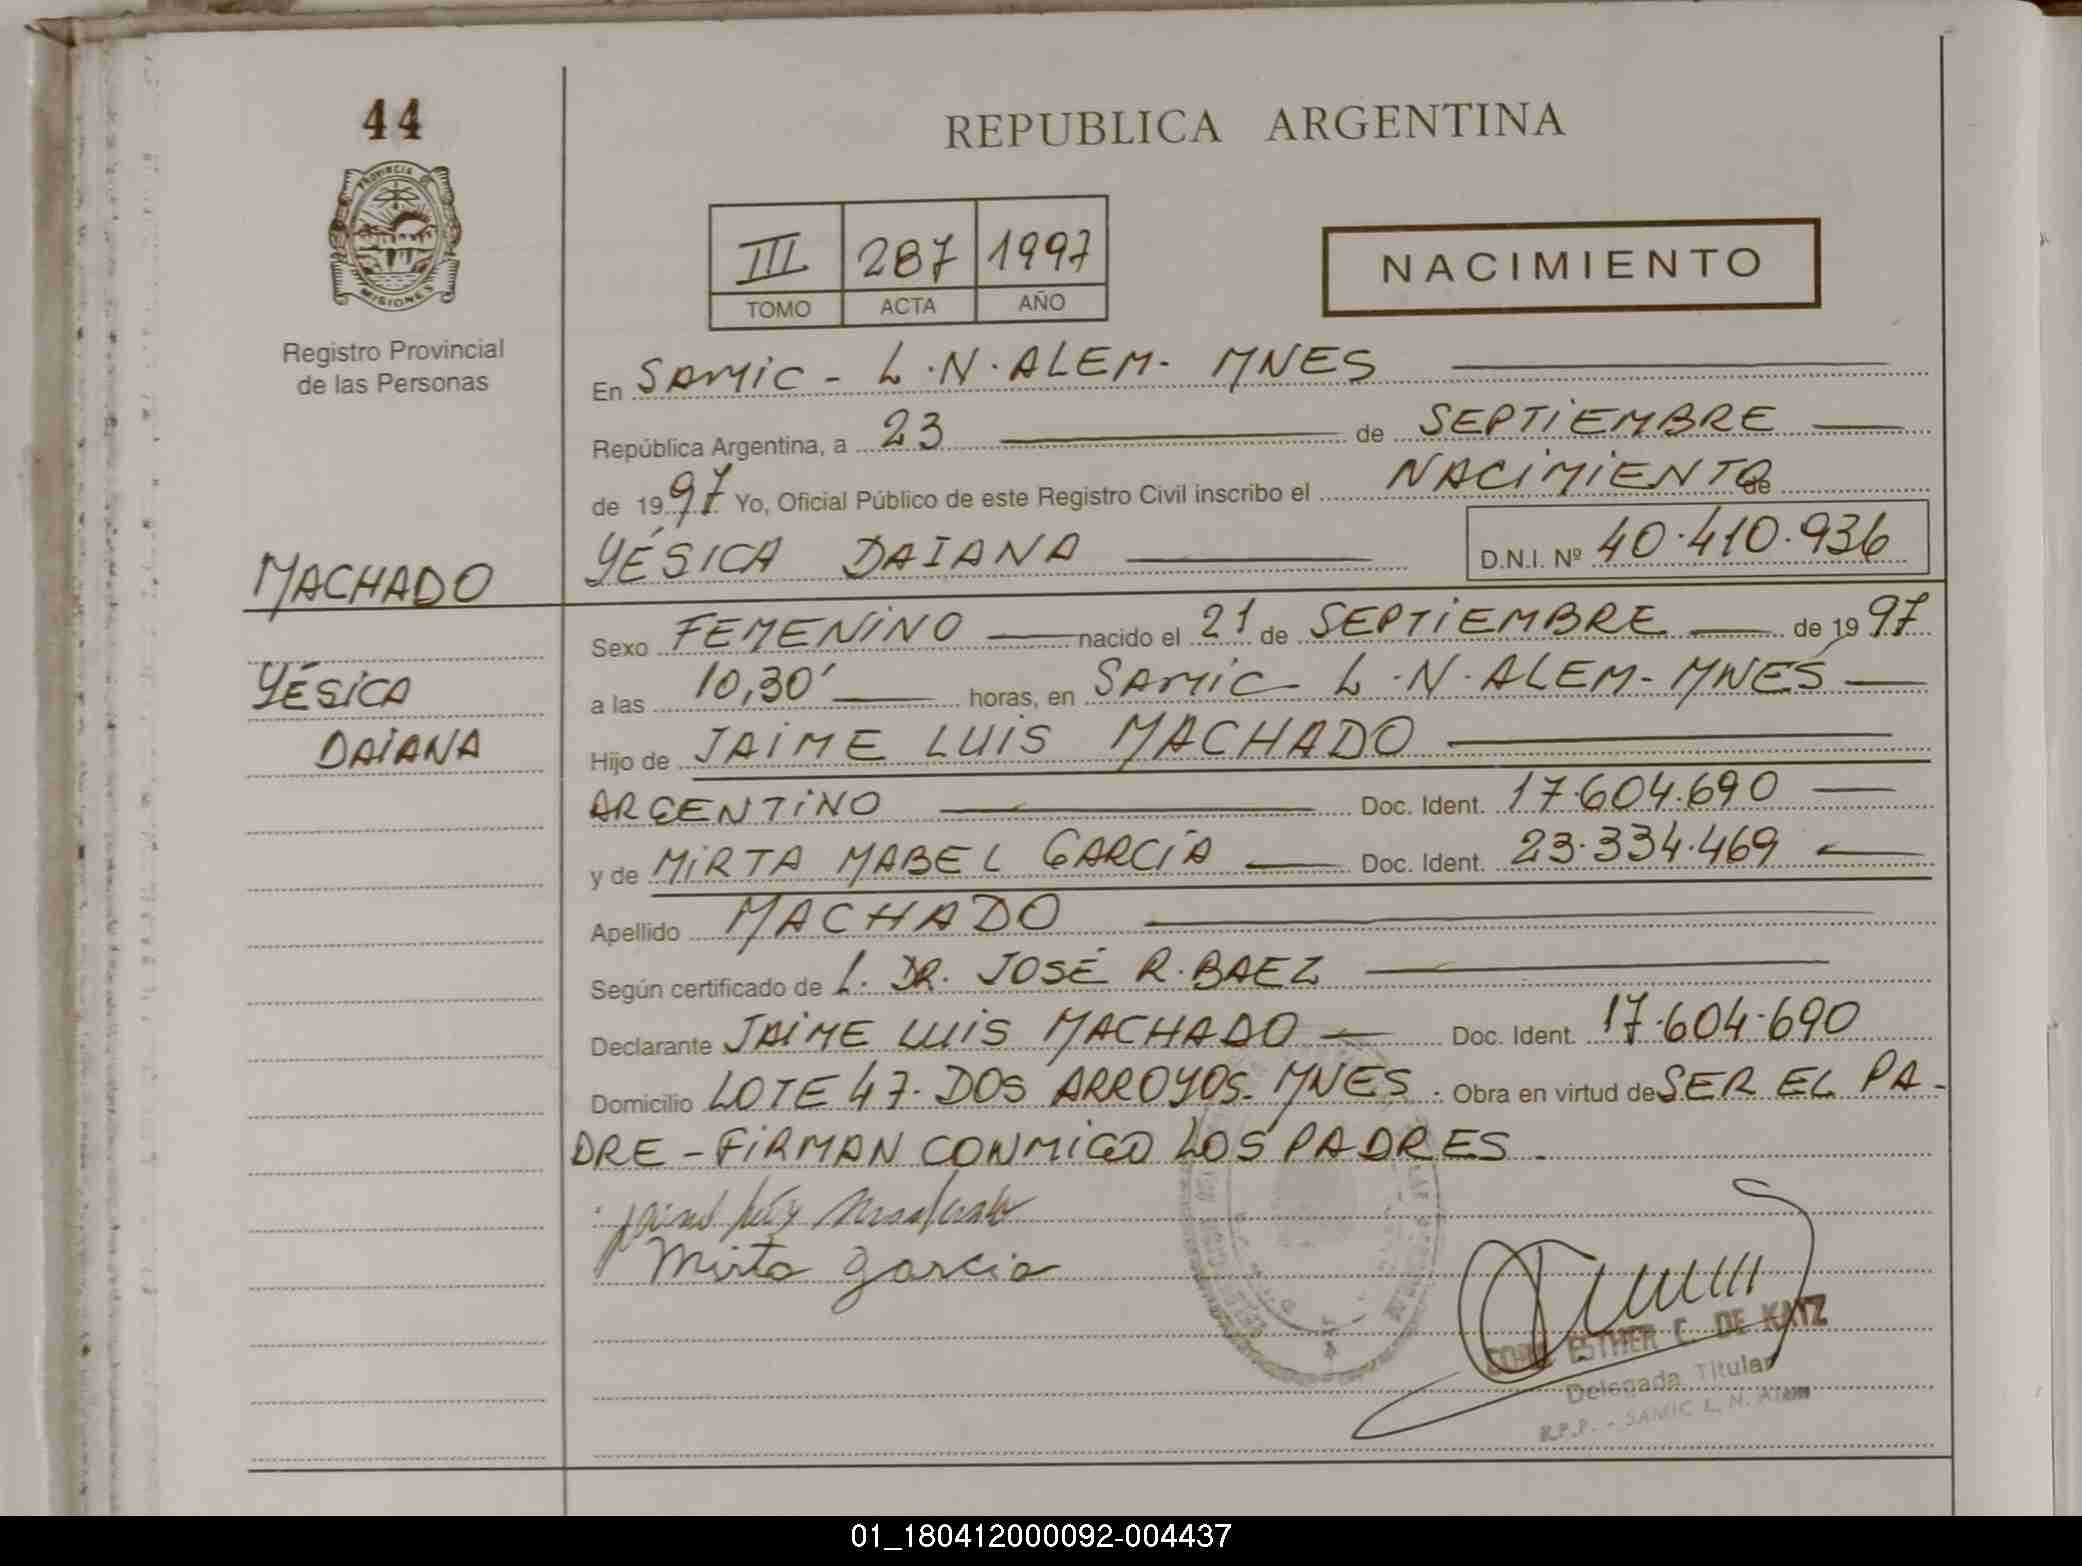 44
PROVINCIA DE
MISIONES
Registro Provincial
de las Personas
MACHADO
YÉSICA
DAIANA
REPUBLICA ARGENTINA
III 287 1997
TOMO ACTA AÑO
NACIMIENTO
En SAMIC - L.N. ALEM - MNES
República Argentina, a 23 de SEPTIEMBRE
de 1997 Yo, Oficial Público de este Registro Civil inscribo el NACIMIENTO de
YÉSICA DAIANA D.N.I. Nº 40.410.936
Sexo FEMENINO nacido el 21 de SEPTIEMBRE de 1997
a las 10,30' horas, en SAMIC - L.N. ALEM - MNES
Hijo de JAIME LUIS MACHADO
ARGENTINO Doc. Ident. 17.604.690
y de MIRTA MABEL GARCÍA Doc. Ident. 23.334.469
Apellido MACHADO
Según certificado de L. DR. JOSÉ R. BAEZ
Declarante JAIME LUIS MACHADO Doc. Ident. 17.604.690
Domicilio LOTE 47. DOS ARROYOS. MNES. Obra en virtud de SER EL PA-
DRE - FIRMAN CONMIGO LOS PADRES.
Mirta garcia
ESTHER C. DE KATZ
Delegada Titular
R.P.P. - SAMIC L. N. Alem
01_180412000092-004437